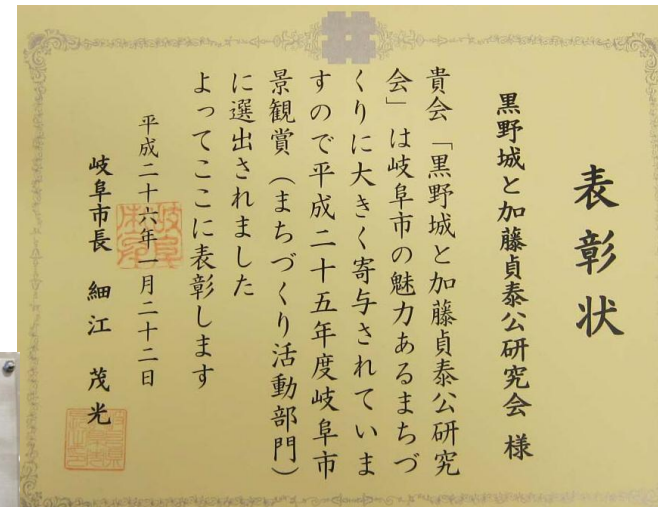 表彰状
黒野城と加藤貞泰公研究会 様
貴会「黒野城と加藤貞泰公研究
会」は岐阜市の魅力あるまちづ
くりに大きく寄与されていま
すので平成二十五年度岐阜市
景観賞（まちづくり活動部門）
に選出されました
よってここに表彰します
平成二十六年一月二十二日
岐阜市長 細江 茂光